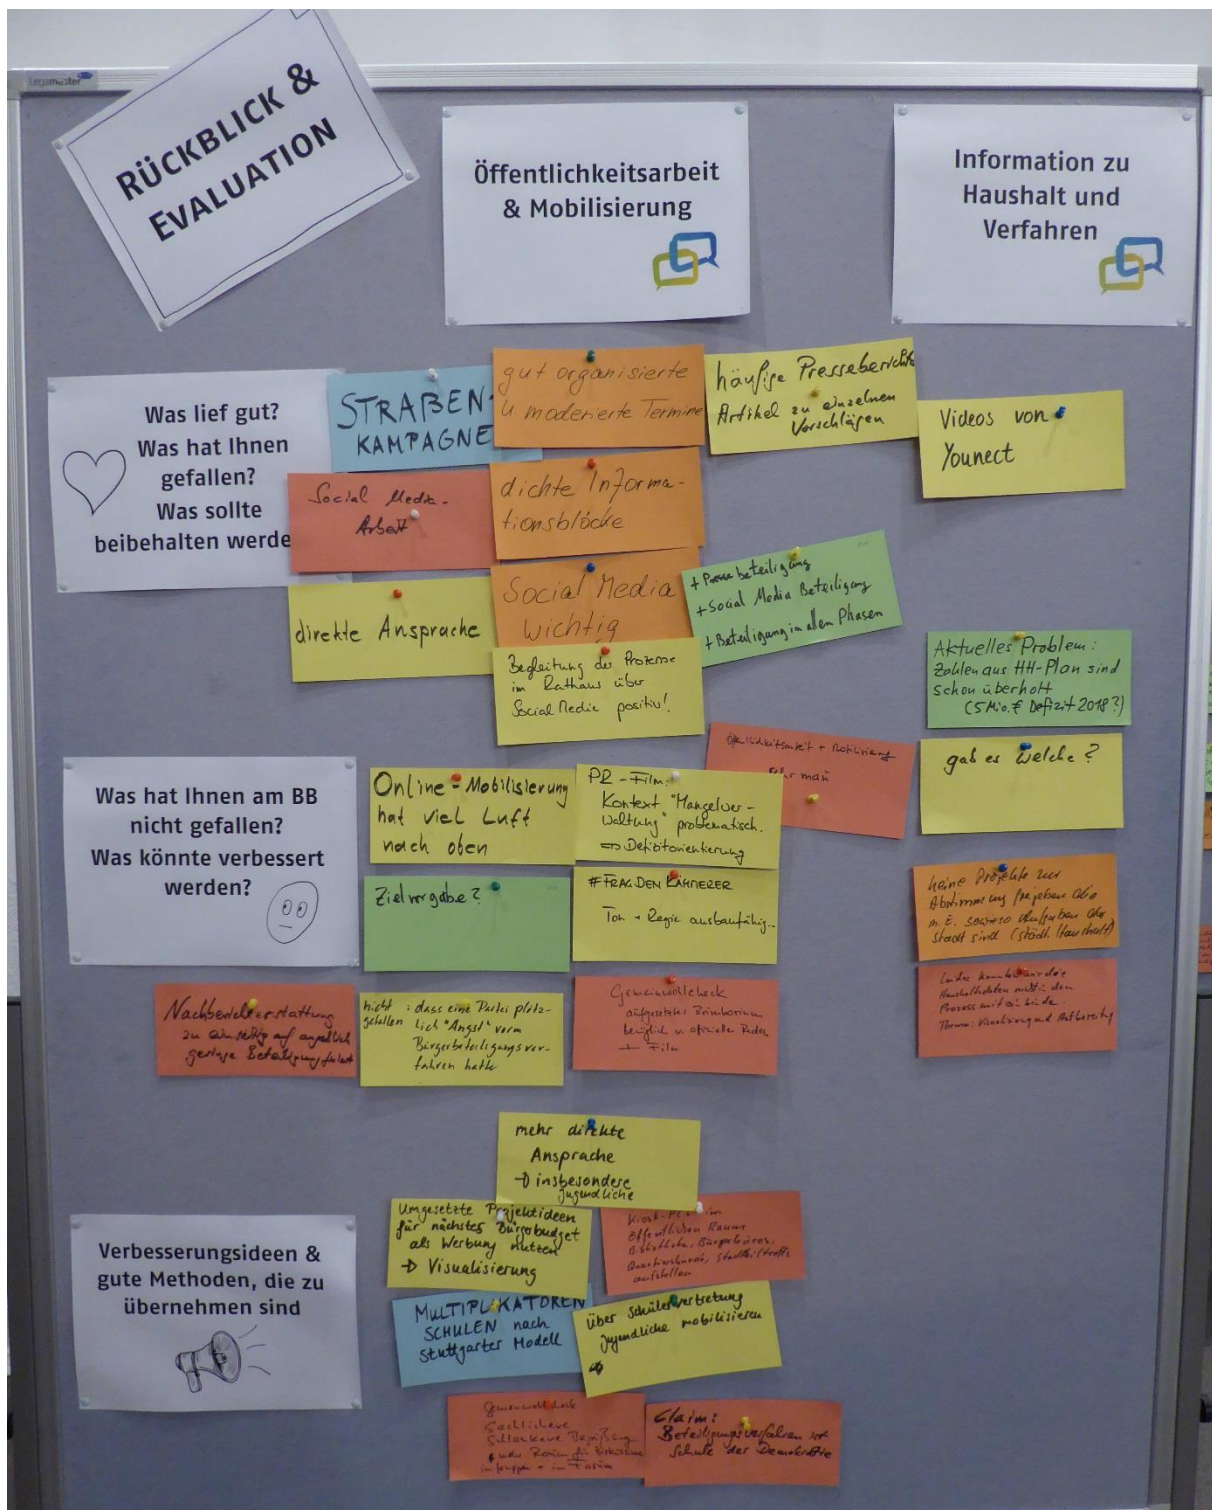 Legamaster
RÜCKBLICK &
EVALUATION
Öffentlichkeitsarbeit
& Mobilisierung
Information zu
Haushalt und
Verfahren
Was lief gut?
Was hat Ihnen
gefallen?
Was sollte
beibehalten werde
STRAßEN-
KAMPAGNE
gut organisierte
u moderierte Termine
häufige Presseberichte
Artikel zu einzelnen
Vorschlägen
Videos von
Younect
Social Media-
Arbeit
dichte Informa-
tionsblöcke
direkte Ansprache
Social Media
wichtig
+ Pressebeteiligung
+ Social Media Beteiligung
+ Beteiligung in allen Phasen
Begleitung der Prozesse
im Rathaus über
Social Media positiv!
Aktuelles Problem:
Zahlen aus HH-Plan sind
schon überholt
(5 Mio. € Defizit 2018?)
Was hat Ihnen am BB
nicht gefallen?
Was könnte verbessert
werden?
Online-Mobilisierung
hat viel Luft
nach oben
PR-Film:
Kontext "Mangelver-
waltung" problematisch.
⇒ Defizitorientierung
Öffentlichkeitsarbeit + Mobilisierung
sehr mau
gab es welche?
Zielvorgabe?
#FRAG DEN KÄMMERER
Ton + Regie ausbaufähig..
keine Projekte zur
Abstimmung freigeben die
m. E. sowieso Aufgaben der
Stadt sind (städt. Haushalt)
Nachberichterstattung
zu einseitig auf angeblich
geringe Beteiligung
nicht : dass eine Partei plötz-
gefallen lich "Angst" vorm
Bürgerbeteiligungsver-
fahren hatte
Gemeinwohlcheck
aufgesetztes Brimborium
bezüglich u. offizielle Reden
+ Film
Leider
Haushaltsdaten nicht in den
Prozess mit
Thema: Visualisierung und Aufbereitung
mehr direkte
Ansprache
→ insbesondere
jugendliche
Verbesserungsideen &
gute Methoden, die zu
übernehmen sind
Umgesetzte Projektideen
für nächstes Bürgerbudget
als Werbung nutzen
→ Visualisierung
Kiosk-
Öffentlichen Raum
Bibliothek, Bürgerbüros,
Quartiersbüros, Stadtteiltreffs
aufstellen
MULTIPLIKATOREN
SCHULEN nach
Stuttgarter Modell
über Schülervertretung
jugendliche mobilisieren
Gemeinwohlcheck
Sachlichere
Schlankere Begrüßung
mehr Raum für
in Gruppen + im Forum
Claim:
Beteiligungsverfahren ist
Schule der Demokratie